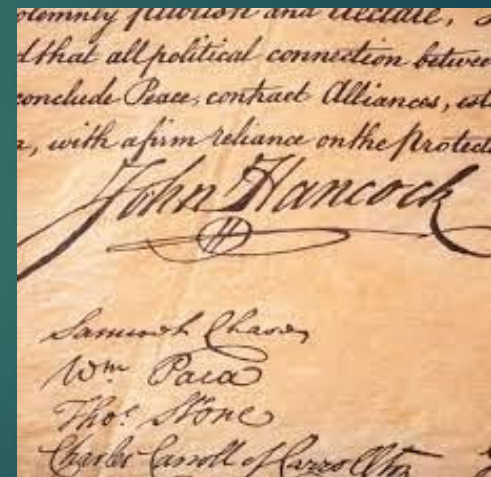 solemnly publish and declare,
d that all political connection betwee
conclude Peace, contract Alliances, est
n, with a firm reliance on the Protect
John Hancock
Samuel Chase
Wm Paca
Thos. Stone
Charles Carroll of Carrollton